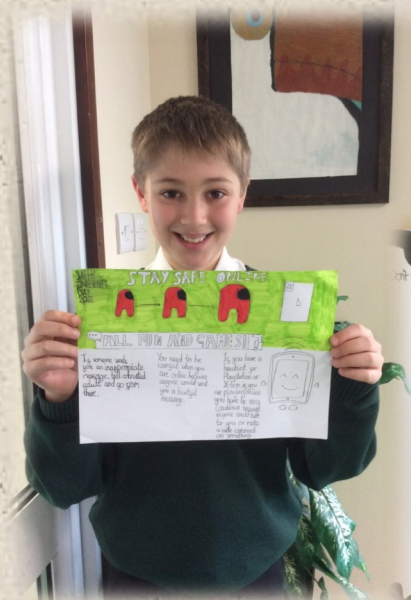 INTERNET
DAY
STAY SAFE ONLINE
ALL FUN AND GAMES!
If someone sends
you an inappropriate
message, tell a trusted
adult and go from
that.
You need to be
careful when you
are online because
anyone could send
you a hurtful
message.
If you have a
headset for
Playstation or
X-box
you have to be very
cautious because
anyone could talk
to you or make
a rude comment
or something